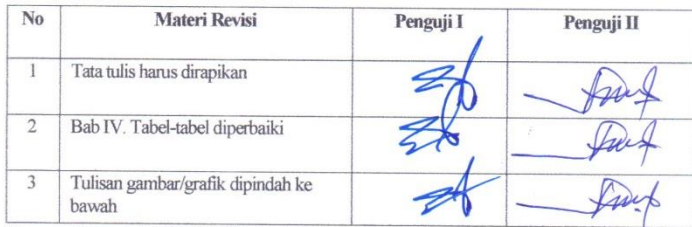 No Materi Revisi Penguji I Penguji II
1 Tata tulis harus dirapikan
2 Bab IV. Tabel-tabel diperbaiki
3 Tulisan gambar/grafik dipindah ke
bawah